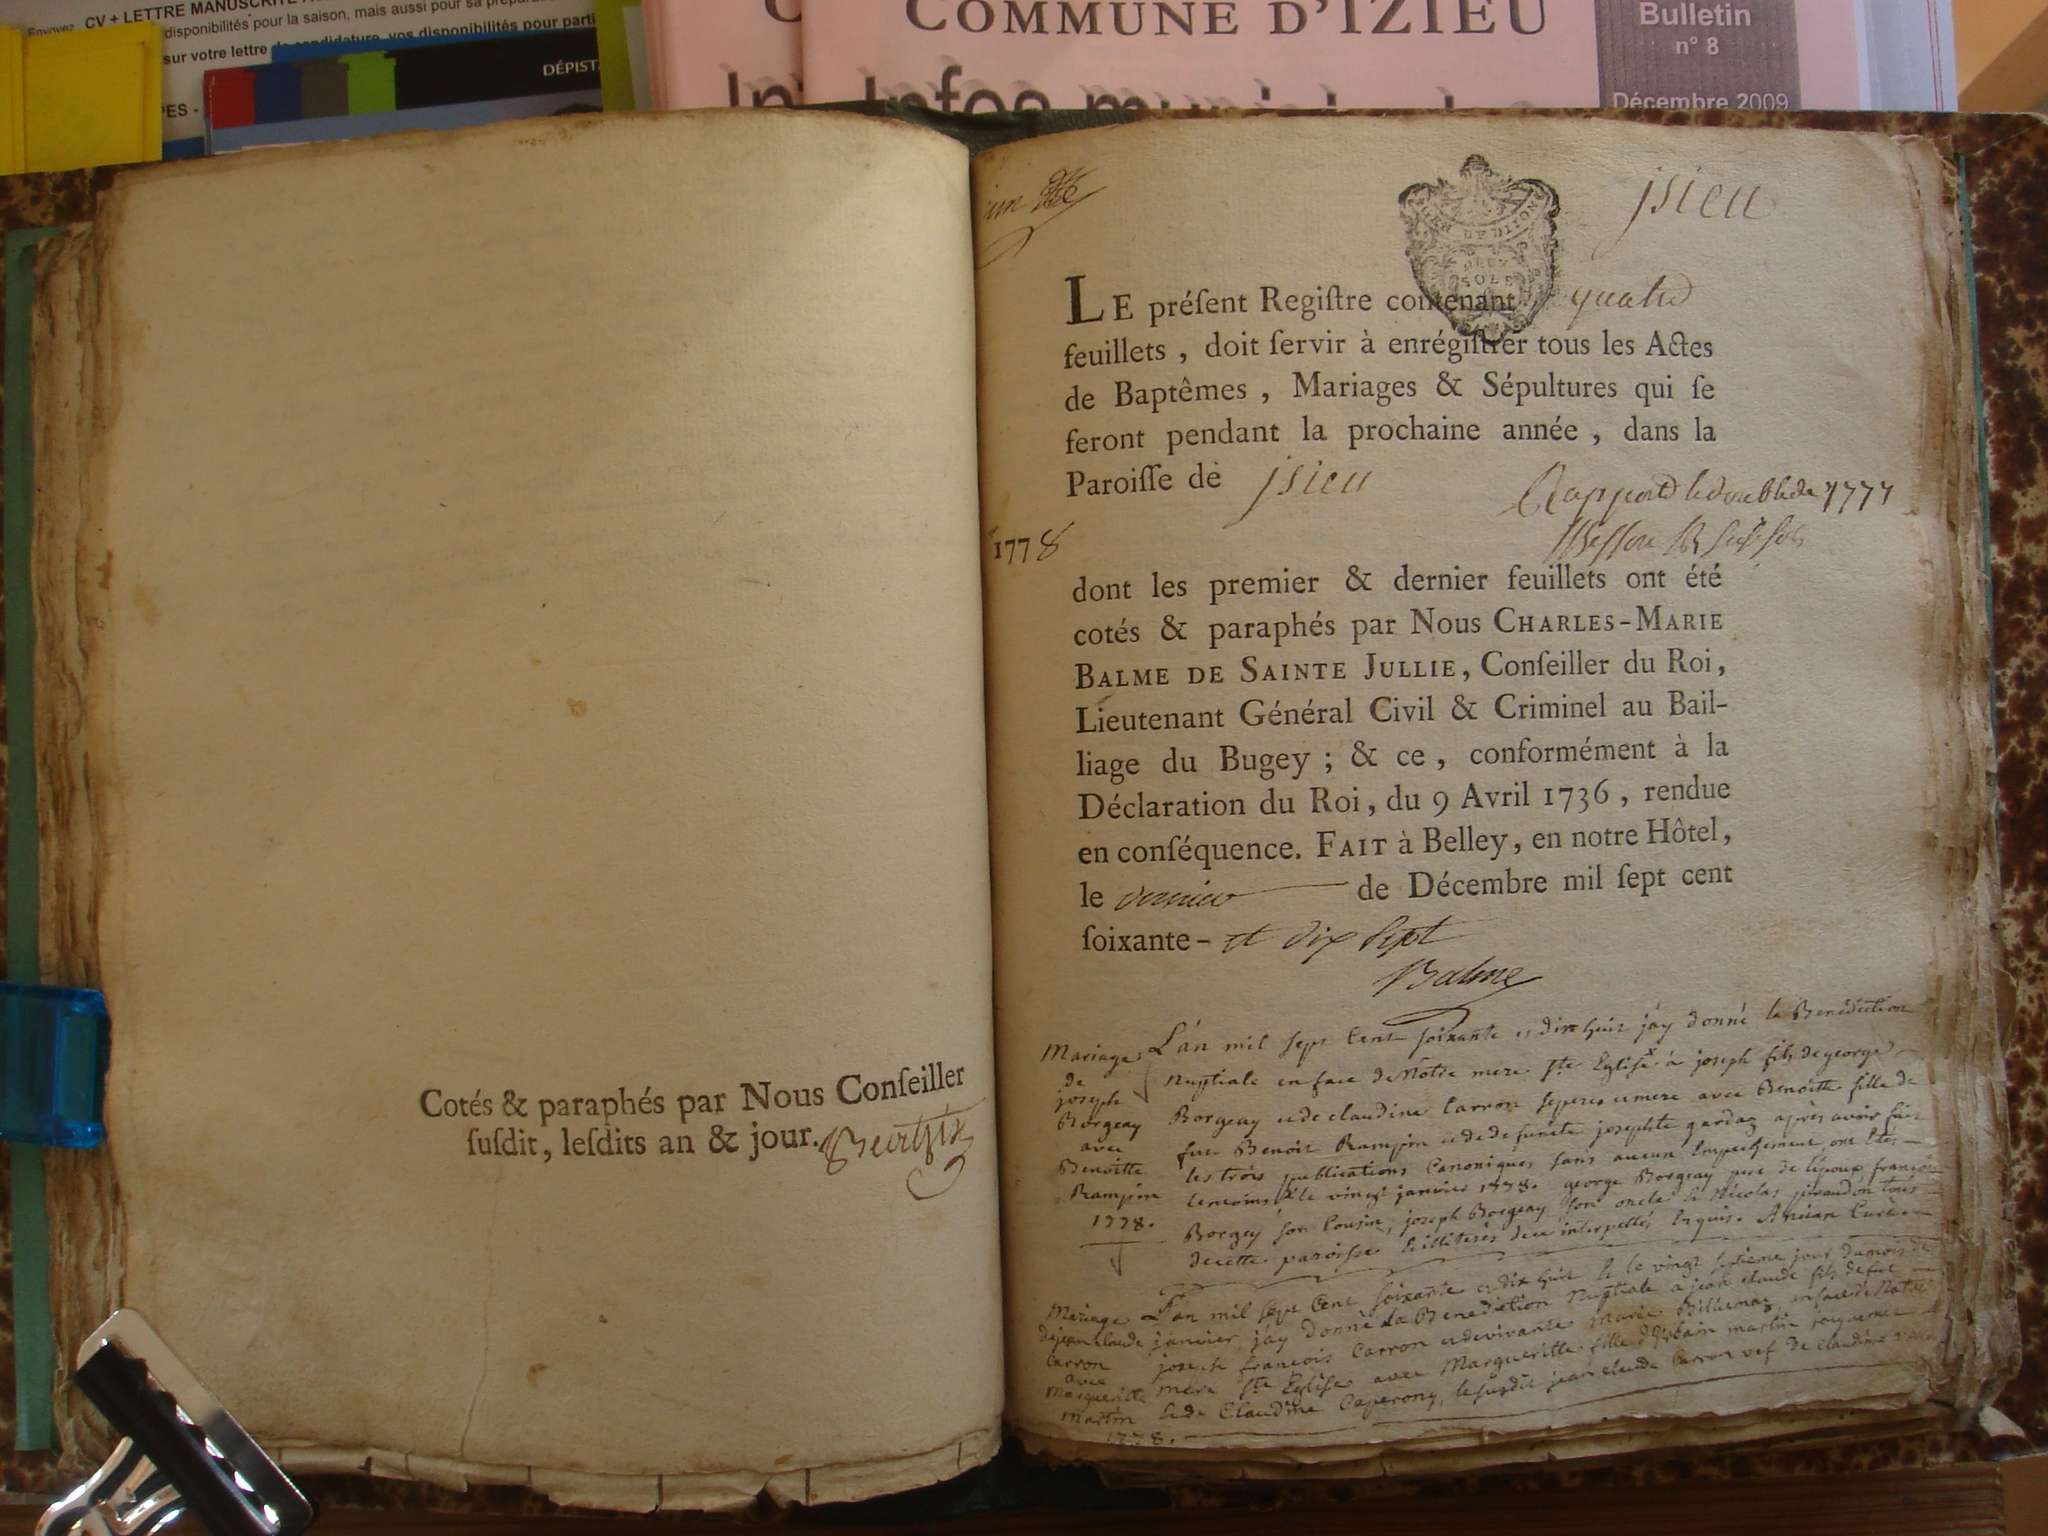 CV + LETTRE MANUSCRITE
disponibilités pour la saison, mais aussi pour sa
sur votre lettre de candidature, vos disponibilités pour
DÉPIST
COMMUNE D'IZIEU
Infos
Bulletin
n° 8
Décembre 2009
Cotés & paraphés par Nous Conſeiller
ſuſdit, leſdits an & jour.
jsieu
LE préſent Regiſtre contenant quatre
feuillets, doit ſervir à enrégiſtrer tous les Actes
de Baptêmes, Mariages & Sépultures qui ſe
feront pendant la prochaine année, dans la
Paroiſſe de jsieu
Rapporté le double de 1777
1778
dont les premier & dernier feuillets ont été
cotés & paraphés par Nous CHARLES-MARIE
BALME DE SAINTE JULLIE, Conſeiller du Roi,
Lieutenant Général Civil & Criminel au Bail-
liage du Bugey; & ce, conformément à la
Déclaration du Roi, du 9 Avril 1736, rendue
en conſéquence. FAIT à Belley, en notre Hôtel,
le dernier de Décembre mil ſept cent
ſoixante- et dix sept
Balme
Mariage de joseph Borgeay avec Benoitte Rampin 1778.
L'an mil sept Cent soixante et dix huit j'ay donné la Benediction
Nuptiale en face de Notre mere Ste Eglise à joseph fils de george
Borgeay et de claudine Carron ses pere et mere avec Benoitte fille de
feu Benoit Rampin et de defuncte josephte gardaz après avoir fait
les trois publications Canoniques sans aucun Empechement ont étés
temoins le vingt janvier 1778. george Borgeay pere de l'époux françois
Borgey son Cousin, joseph Borgeay son oncle et Nicolas tous
de cette paroisse illiterés de ce interpellés Enquis. Curé
Mariage de jean claude Carron avec Margueritte Martin 1778.
L'an mil sept Cent soixante et dix huit et le vingt jour du mois de
janvier, j'ay donné la Benediction Nuptiale a jean claude fils de feu
joseph françois Carron et de vivante Marie Billiemaz en face de Notre
mere Ste Eglise avec Margueritte fille d' martin
et de Claudine Caperony, le susdit jean claude Carron vef de claudine